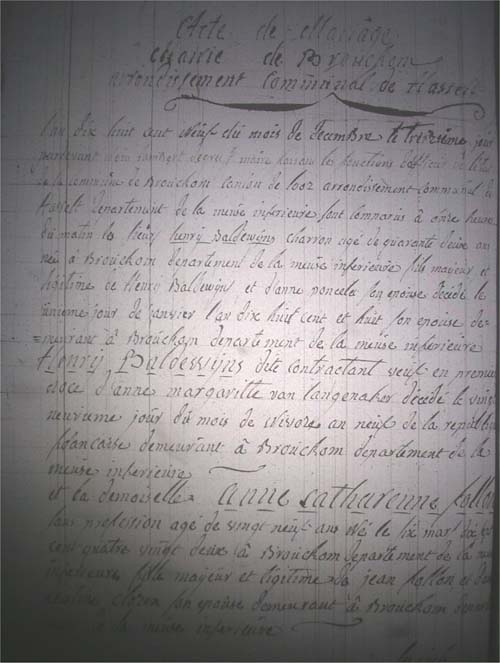 Acte de Mariage
Mairie de Brouckom
arrondissement Comminal de Hasselt
l'an dix huit cent Neuf du mois de decembre le treisieme jour
pardevant nous lambert maire faisant les fonctions d'officier de l'état
de la commune de Brouckom canton de looz arrondissement communal de
hasselt departement de la meuse inferieure sont comparus à onze heures
du matin le sieur henry Baldewyns charron agé de quarante deux ans
neé à Brouckom departement de la meuse inferieure fils majeur et
légitime de Henry Baldewyns et d'anne poncelet son epouse décedé le
jour de janvier l'an dix huit cent et huit son epouse de-
=meurant à Brouckom departement de la meuse inferieure
Henry Baldewyns dite contractant veuf en premier
d'anne margaritte van langenaker décedé le vingt
neuvieme jour du mois de an neuf de la republique
francaise demeurant à Brouckom departement de la
meuse inferieure
et la demoiselle anne Catharenne follon
san profession agé de vingt neuf ans Né le six mars dix sept
cent quatre vingt deux à Brouckom departement de la meuse
inferieure fille majeur et legitime de jean follon et
son epouse demeurant à Brouckom departement
de la meuse inferieure